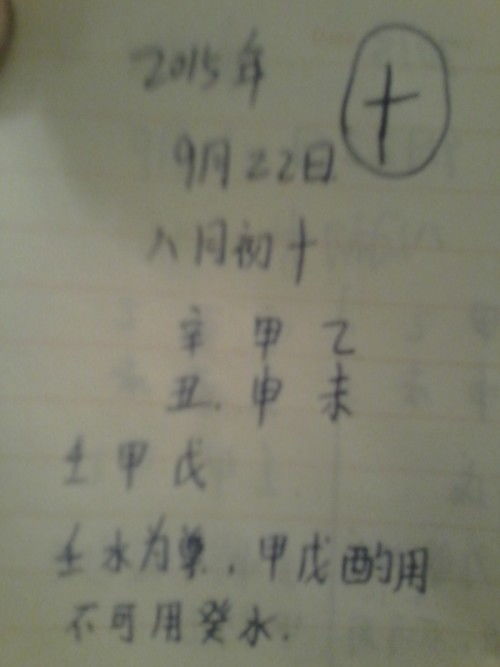 2015年
十
9月22日
八月初十
辛 甲 乙
丑. 申 未
壬 甲 戊
壬水为, 甲戊酌用
不可用癸水.